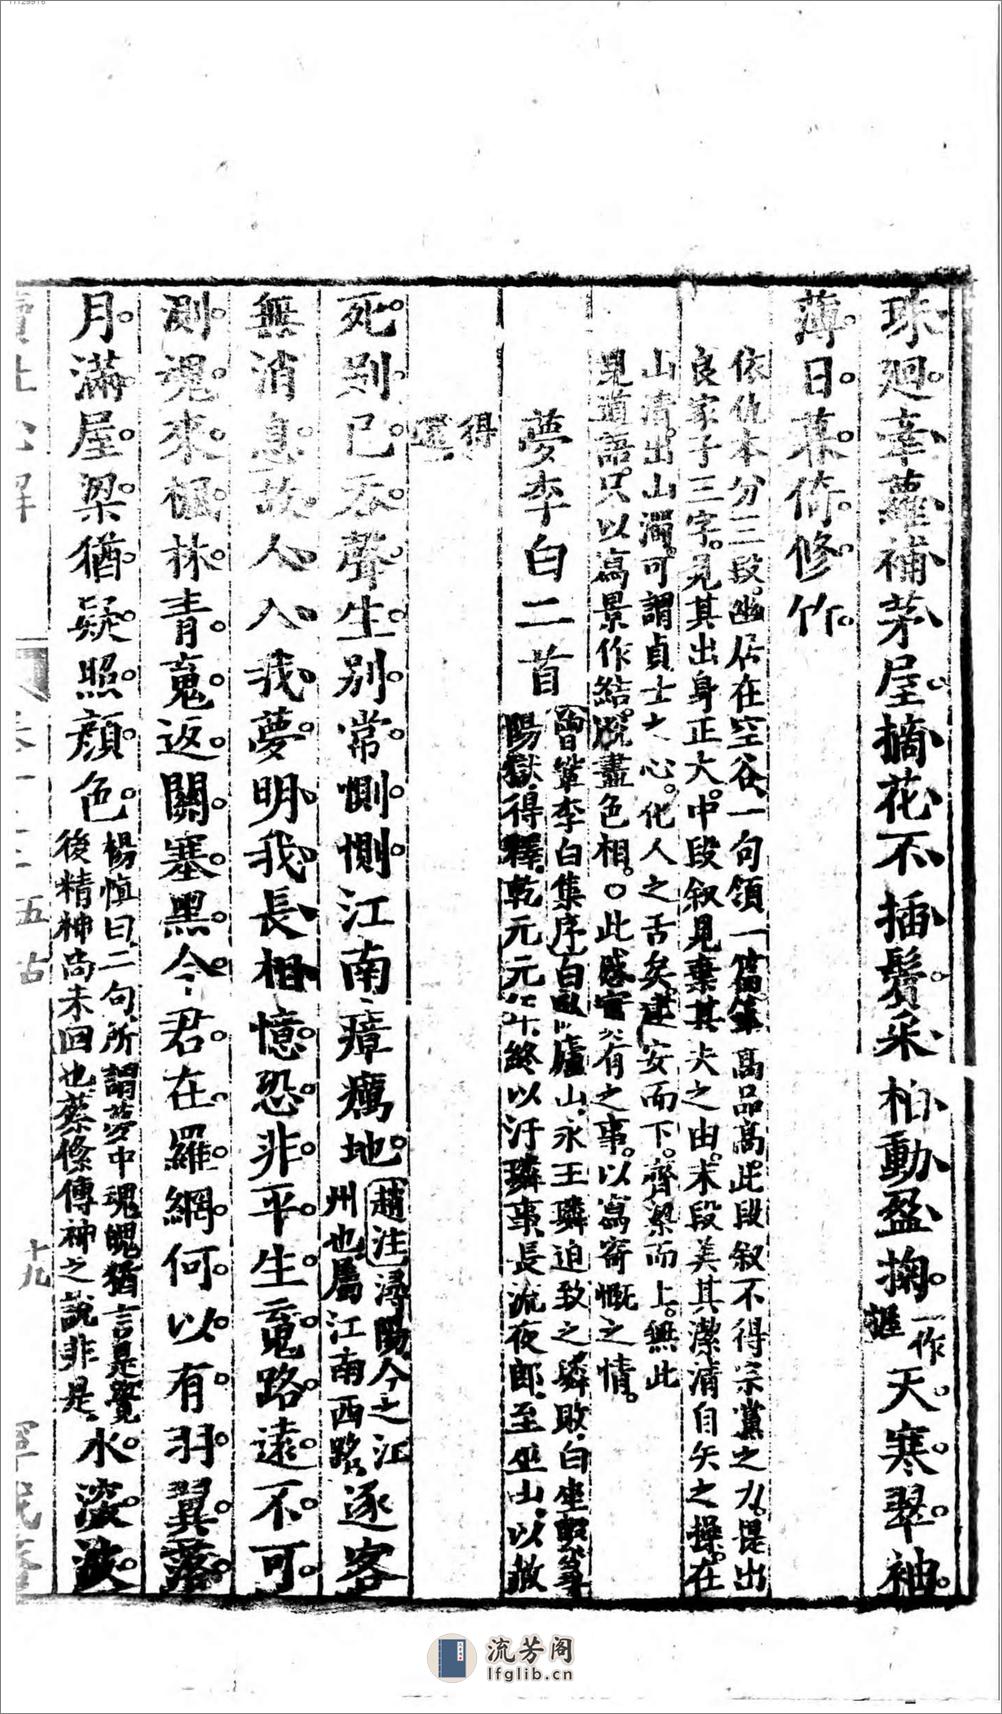 珠廻牽蘿補茅屋摘花不插鬢采柏動盈掬一作握天寒翠袖
薄日暮倚修竹
依仇本分三段幽居在空谷一句領一篇筆高品高此段叙不得宗黨之力提出
良家子三字見其出身正大中段叙見棄其夫之由末段美其潔清自矢之操在
山清出山濁可謂貞士之心化人之舌矣建安而下齊梁而上無此
見道語只以寫景作結脫盡色相○此感實有之事以寫寄慨之情
夢李白二首
曾鞏李白集序白臥廬山永王璘迫致之璘敗白坐繫尋
陽獄得釋乾元元年終以汙璘事長流夜郎至巫山以赦
得
還
死别已吞聲生别常惻惻江南瘴癘地趙注潯陽今之江
州也屬江南西路逐客
無消息故人入我夢明我長相憶恐非平生䰟路遠不可
測魂來楓林青䰟返關塞黑今君在羅網何以有羽翼落
月滿屋梁猶疑照顔色楊慎曰二句所謂夢中魂魄猶言是覺
後精神尚未回也蔡絛傳神之說非是水深波
讀杜心解
卷一之五古
十九
寧我齋
流芳阁
lfglib.cn